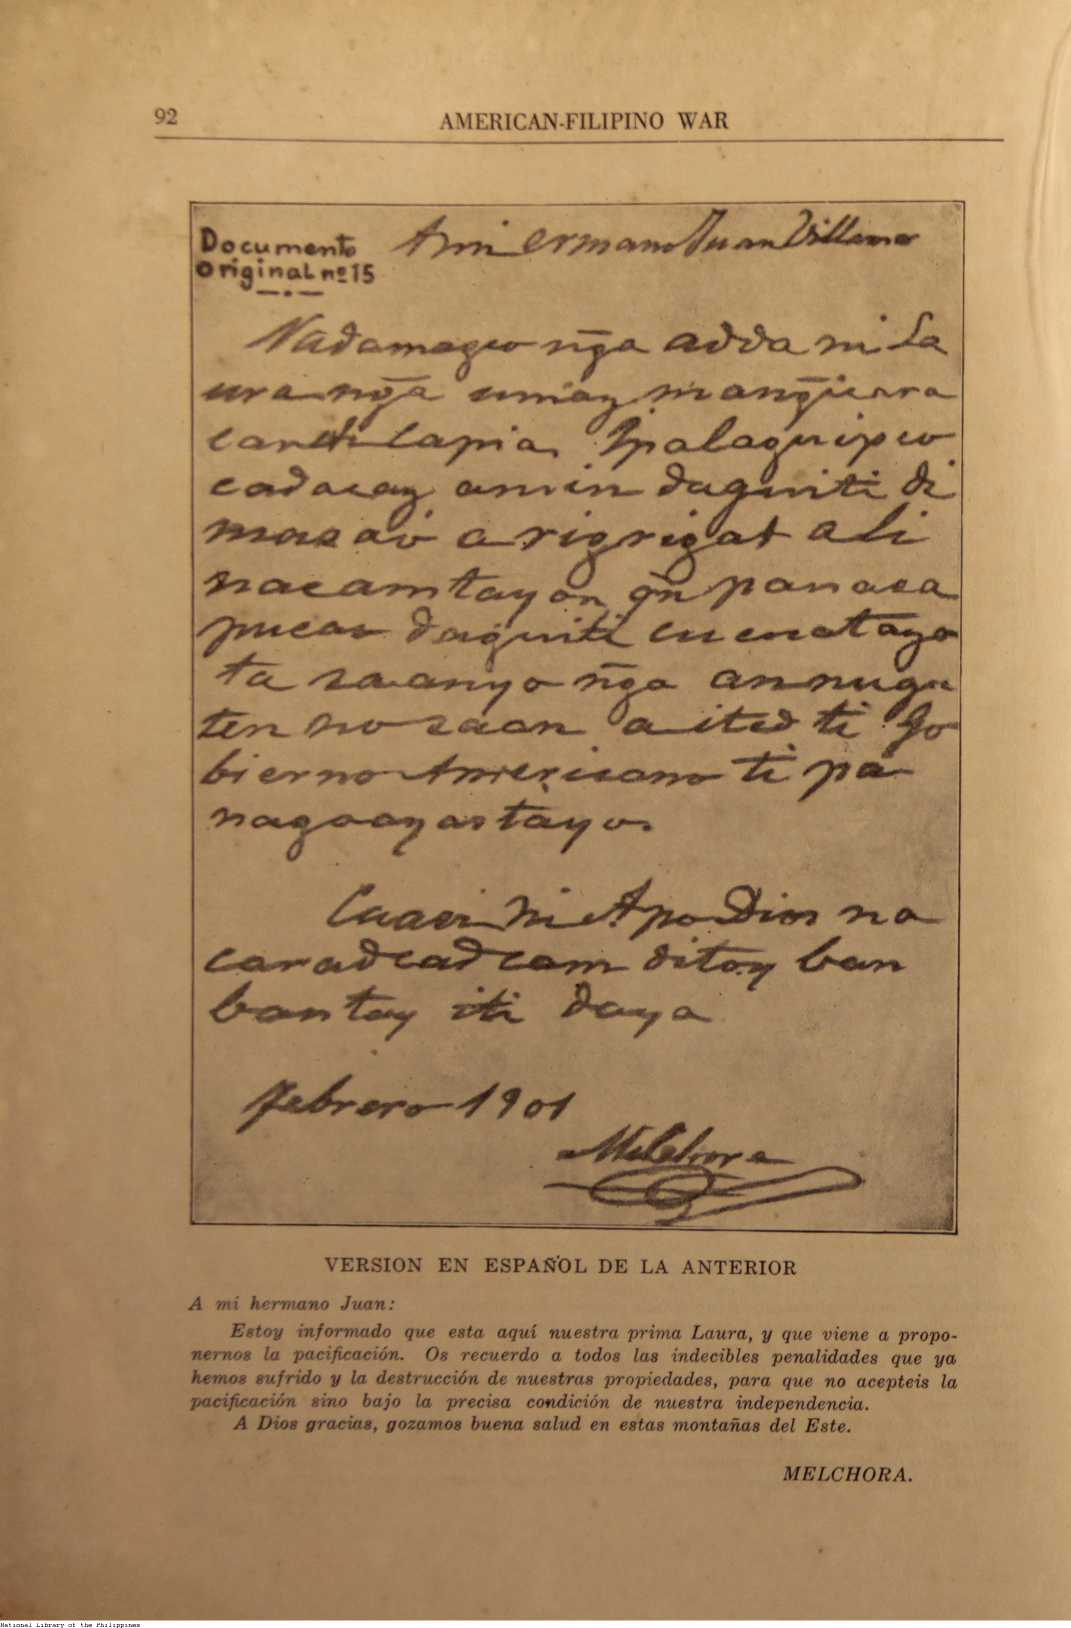 92
AMERICAN-FILIPINO WAR
Documento
Original nº 15
A mi ermano Juan Villamor
Nadamagco ñga adda ni La
ura ñga umay
capia. Ipalaguipco
cadacay amin daguiti di
a rigrigat a li
nacamtayon qñ panaca
pucao daguiti cucuatayo
ta saanyo ñga annugu
ten no saan a ited ti Go
bierno Americano ti pa
nagoayastayo.
Cuasi ni Apo Dios na
caradcadcam ditoy ban
bantay iti daya
Febrero 1901
Melchora
VERSION EN ESPAÑOL DE LA ANTERIOR
A mi hermano Juan:
Estoy informado que esta aquí nuestra prima Laura, y que viene a propo-
nernos la pacificación. Os recuerdo a todos las indecibles penalidades que ya
hemos sufrido y la destrucción de nuestras propiedades, para que no acepteis la
pacificación sino bajo la precisa condición de nuestra independencia.
A Dios gracias, gozamos buena salud en estas montañas del Este.
MELCHORA.
National Library of the Philippines